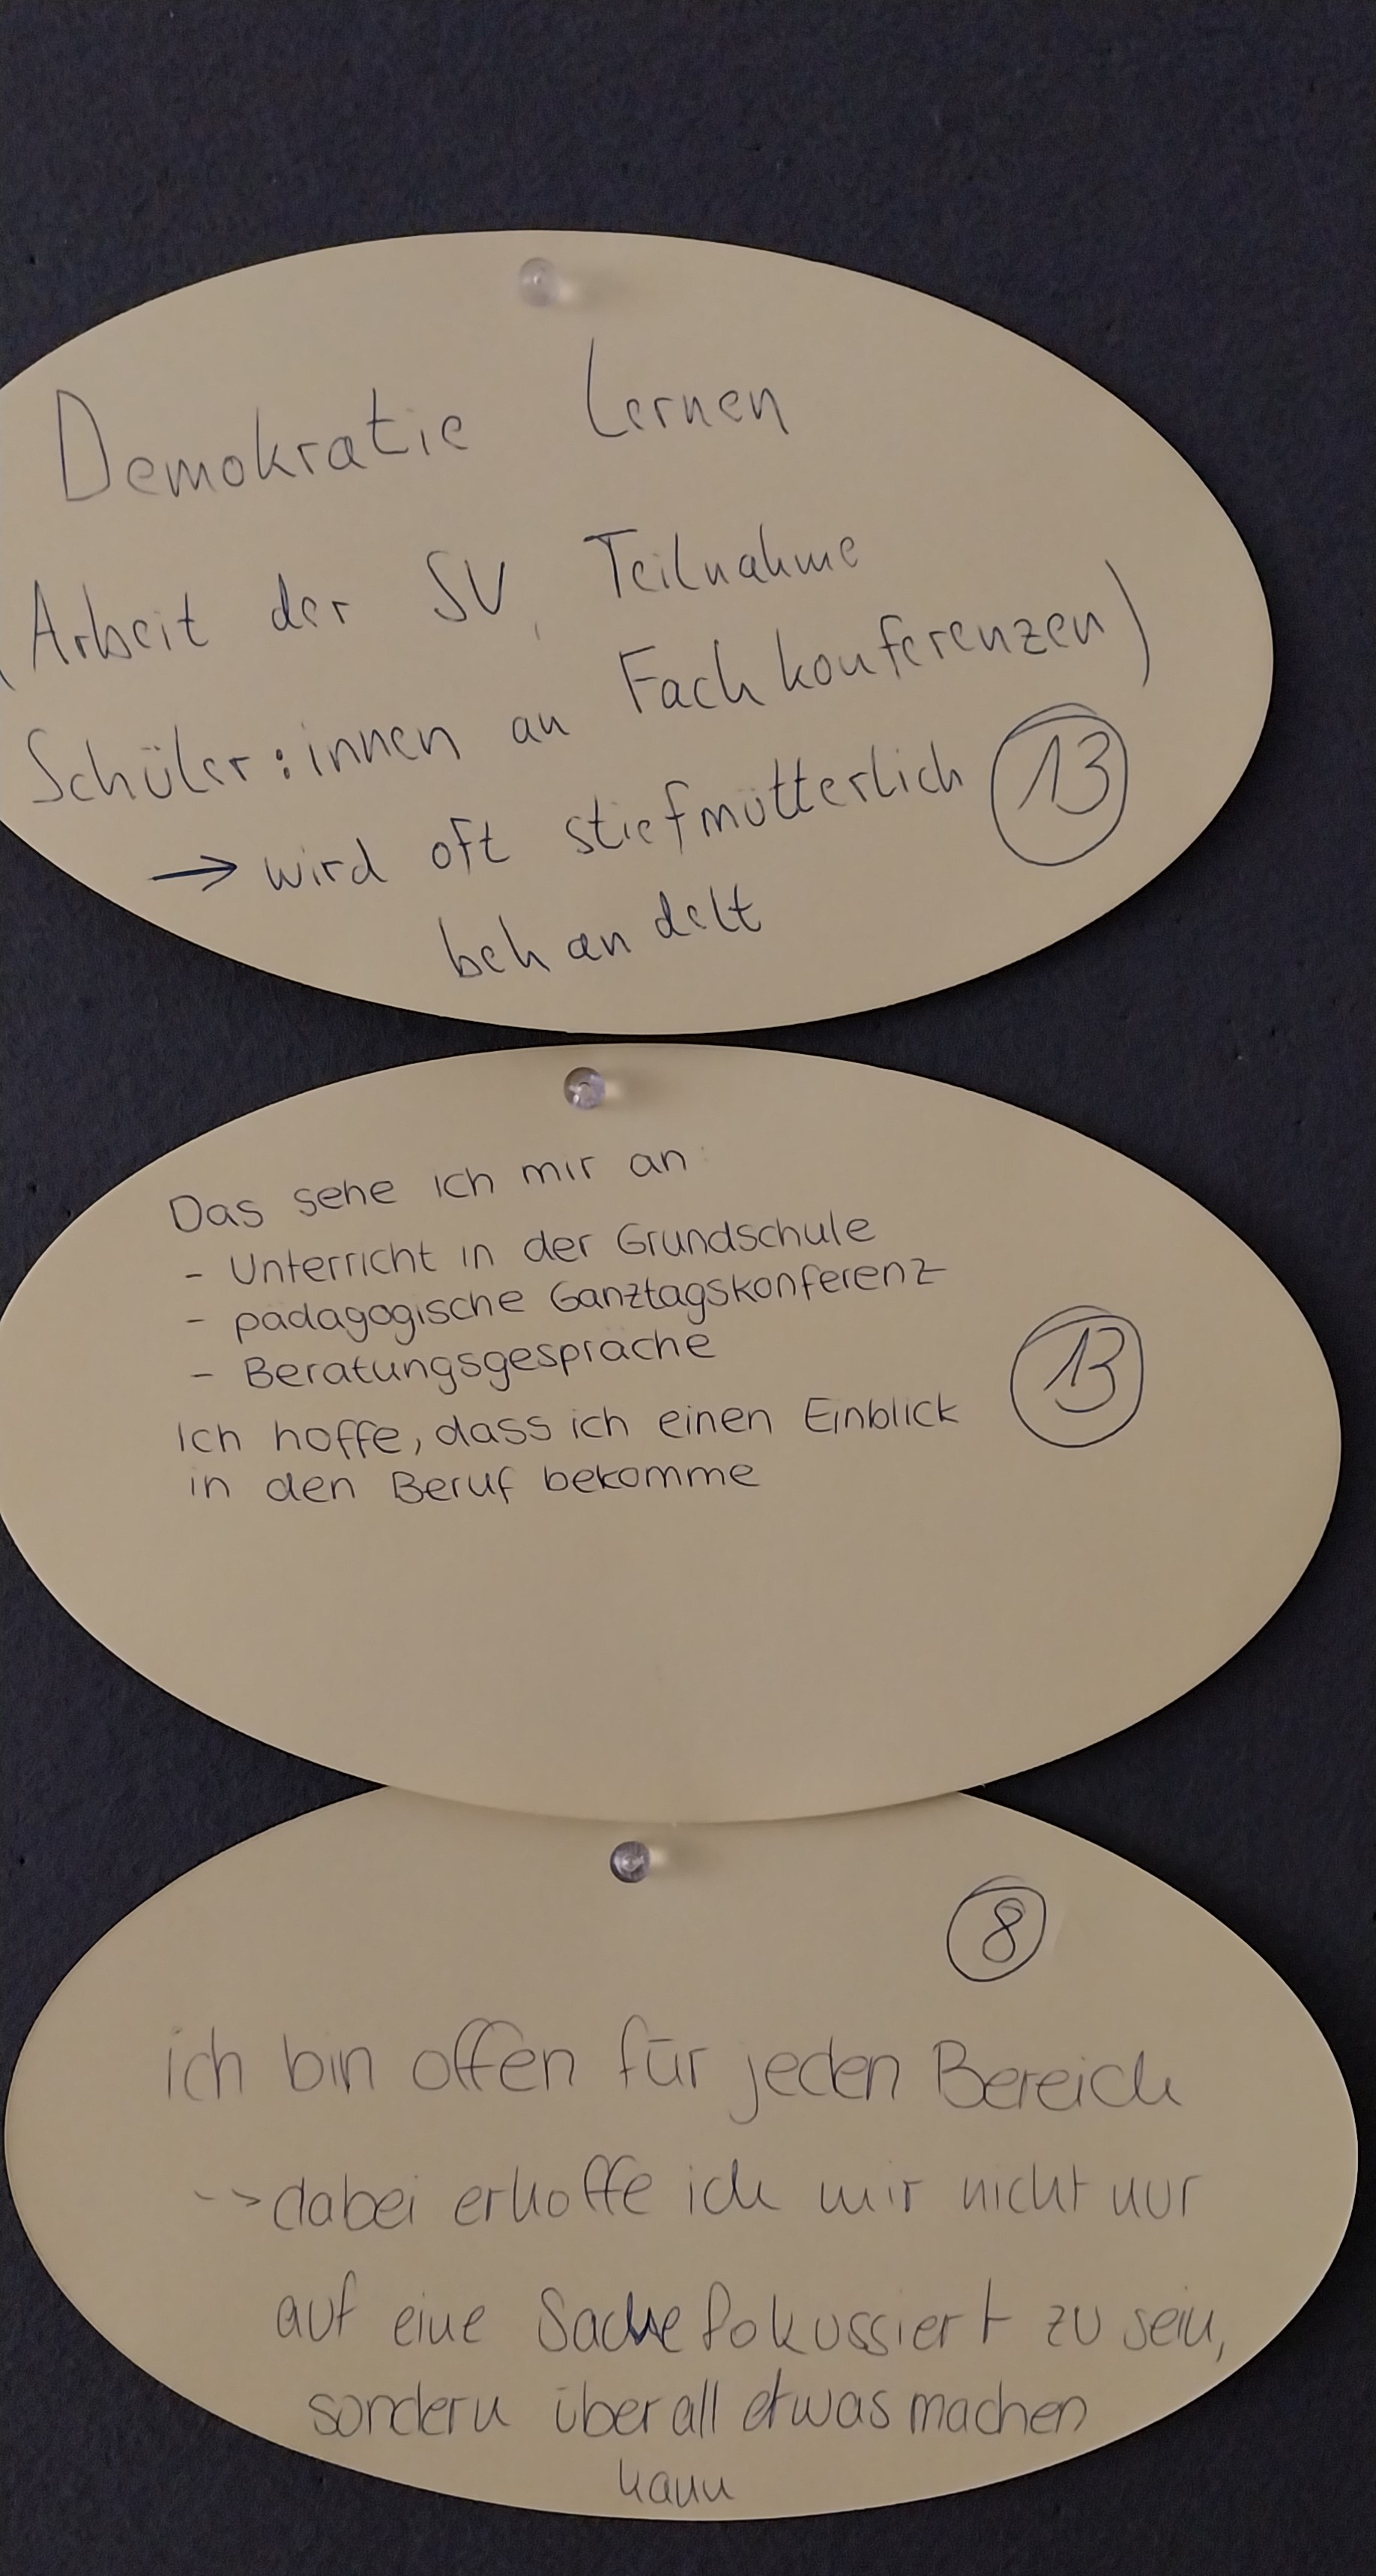 Demokratie Lernen
(Arbeit der SV, Teilnahme
Schüler:innen an Fachkonferenzen)
→ wird oft stiefmütterlich
behandelt
13
Das sehe ich mir an:
- Unterricht in der Grundschule
- pädagogische Ganztagskonferenz
- Beratungsgespräche
Ich hoffe, dass ich einen Einblick
in den Beruf bekomme
13
8
ich bin offen für jeden Bereich
--> dabei erhoffe ich mir nicht nur
auf eine Sache fokussiert zu sein,
sondern überall etwas machen
kann